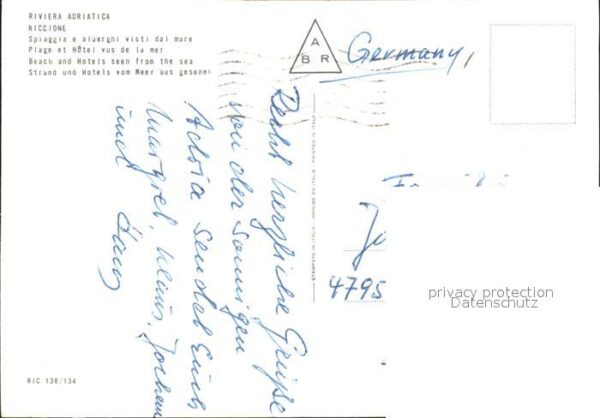 RIVIERA ADRIATICA
RICCIONE
Spiaggia e alberghi visti dal mare
Plage et Hôtel vus de la mer
Beach and Hotels seen from the sea
Strand und Hotels vom Meer aus gesehen
A
B R
Germany,
Recht herzliche Grüße
von der sonnigen
Adria sendet Euch
Margret, Klaus, Jochen
und
Familie
4795
privacy protection
Datenschutz
RIC 138/134